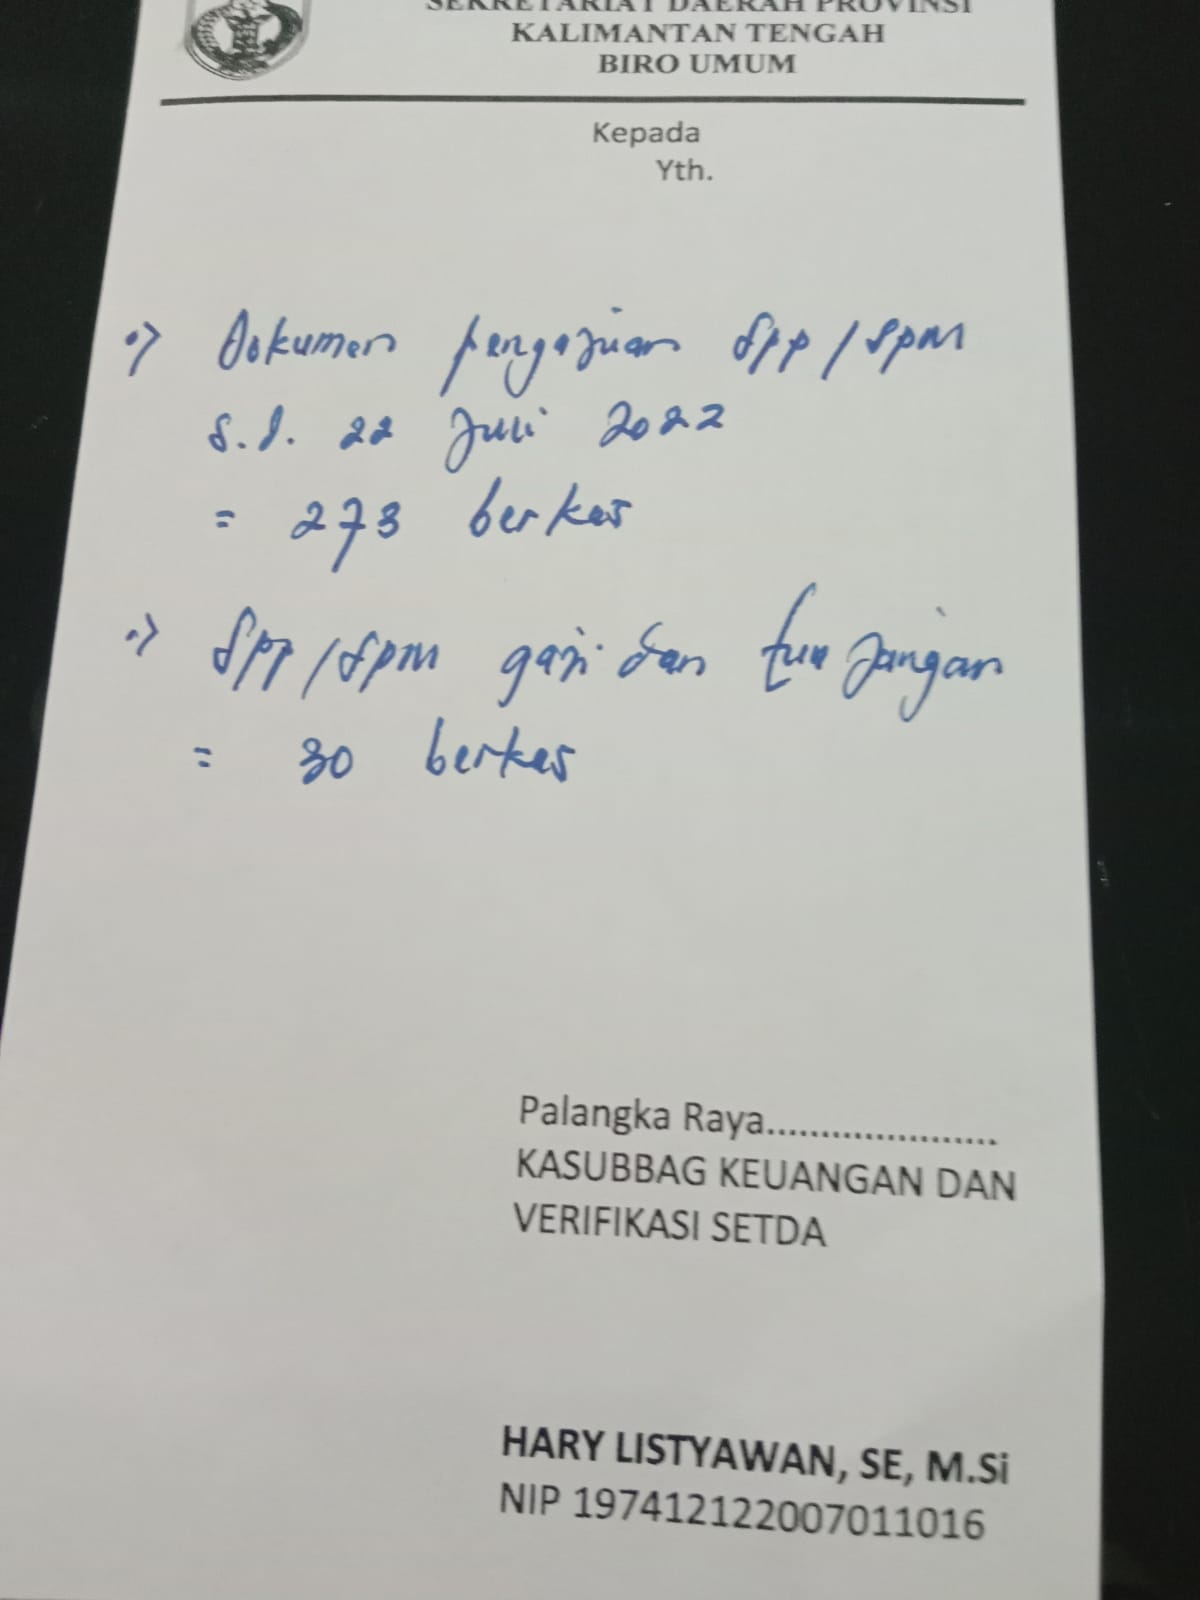 SEKRETARIAT DAERAH PROVINSI
KALIMANTAN TENGAH
BIRO UMUM
Kepada
Yth.
•> Dokumen pengajuan Spp/Spm
s.d. 22 Juli 2022
= 273 berkas
•> Spp/Spm gaji dan tunjangan
= 30 berkas
Palangka Raya.....................
KASUBBAG KEUANGAN DAN
VERIFIKASI SETDA
HARY LISTYAWAN, SE, M.Si
NIP 197412122007011016